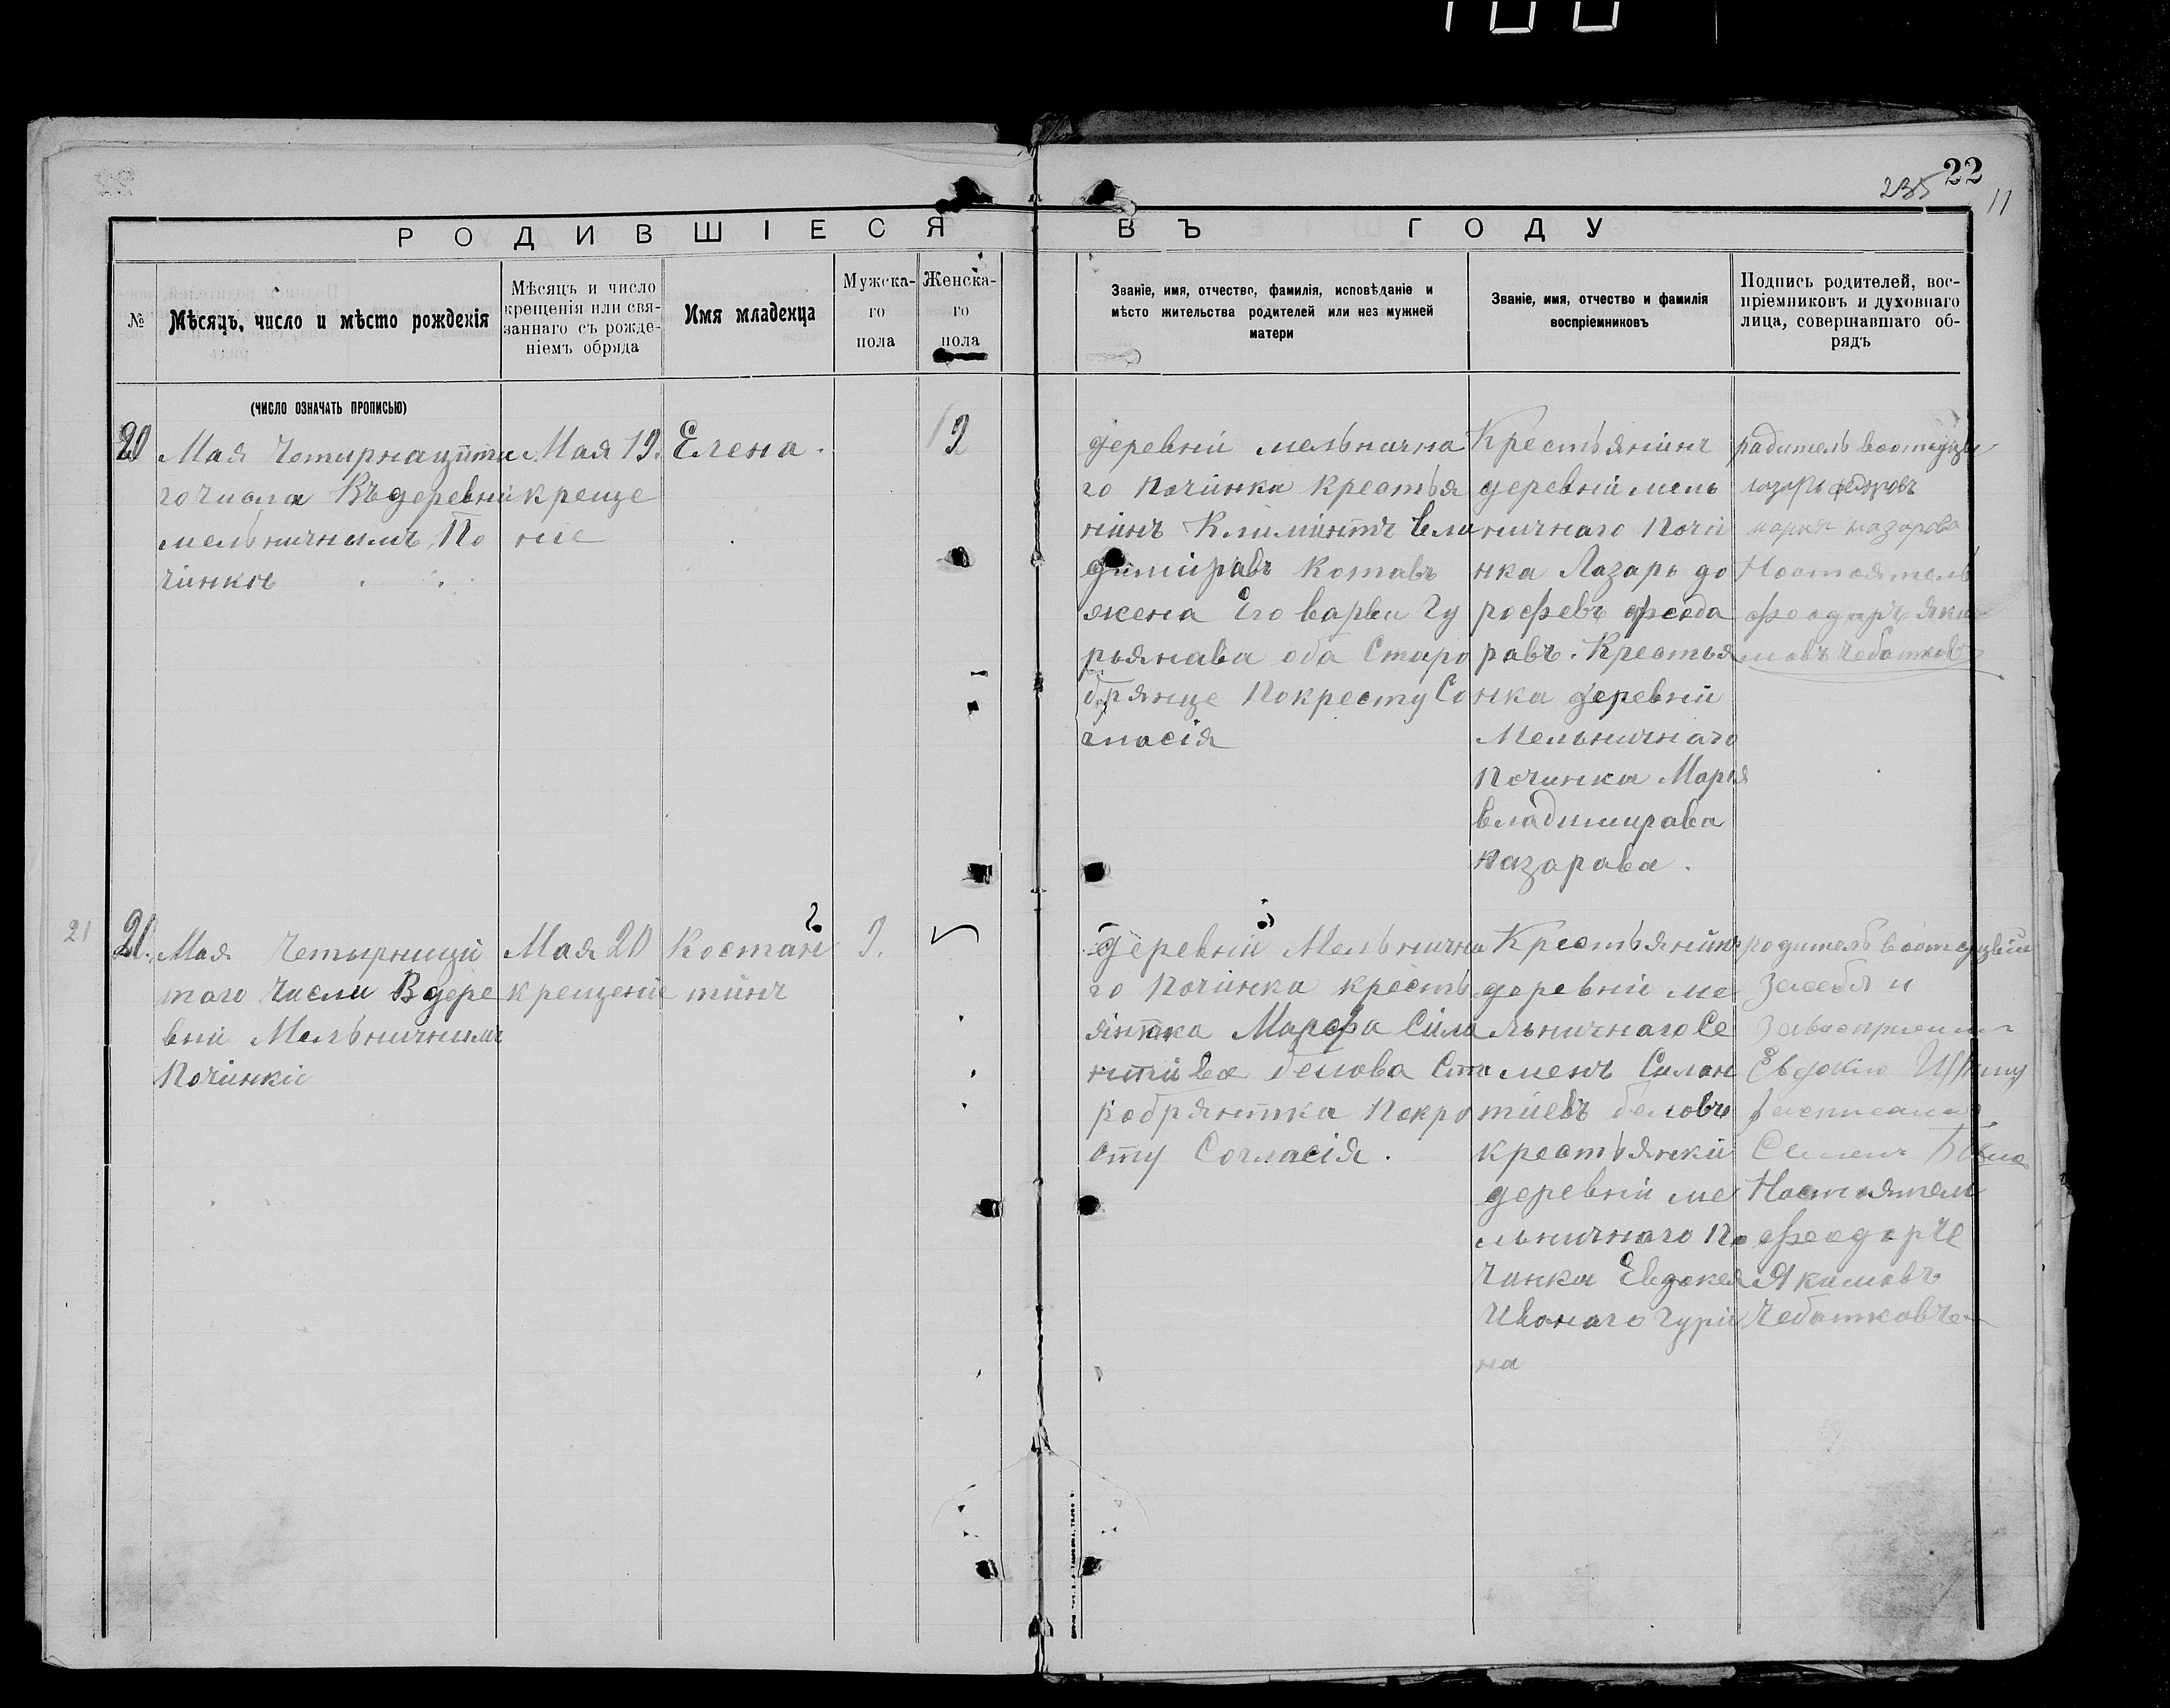 100
22
235
11
РОДИВШІЕСЯ ВЪ ГОДУ
№
Мѣсяцъ, число и мѣсто рожденія
Мѣсяцъ и число
крещенія или свя-
заннаго съ рожде-
ніемъ обряда
Имя младенца
Мужска-
го
пола
Женска-
го
пола
Званіе, имя, отчество, фамилія, исповѣданіе и
мѣсто жительства родителей или нез мужней
матери
Званіе, имя, отчество и фамилія
воспріемниковъ
Подпись родителей, вос-
пріемниковъ и духовнаго
лица, совершавшаго об-
рядъ
(ЧИСЛО ОЗНАЧАТЬ ПРОПИСЬЮ)
20
Мая
го числа Въ деревни
мельничнымъ По
чинки
Мая 19.
креще
ние
Елена.
12
деревни мельнична
го починка крестья
нинъ
Котавъ
жена Его варва Гу
рьянава оба Старо
брянце Покресту Со
гласія
Крестьянинъ
деревни мель
ничнаго Почи
нка Лазарь до
рофевъ феода
равъ. Крестья
нка деревни
Мельничнаго
Починка Марья
владимирава
назарава.
радитель
лазарь федоровъ
марья назарова
Настоятель
феодаръ Яки
мовъ Чебатковъ
21
Мая
таго числа В дере
вни Мельничнымъ
Починки
Мая 20
крещение
Костан
тинъ
9.
деревни Мельнична
го Починка кресть
янтка Марфа Сила
нтива белова Ста
робрянтка Покре
сту Согласія.
Крестьянинъ
деревни ме
льничнаго Се
менъ Силан
тиевъ беловъ
крестьянки
деревни ме
льничнаго По
чинка Евдокея
Иванаго Гури
на
родитель
Засебя и
Евдокию
Семенъ
Настоятель
феодаръ
Якимовъ
Чебатковъ